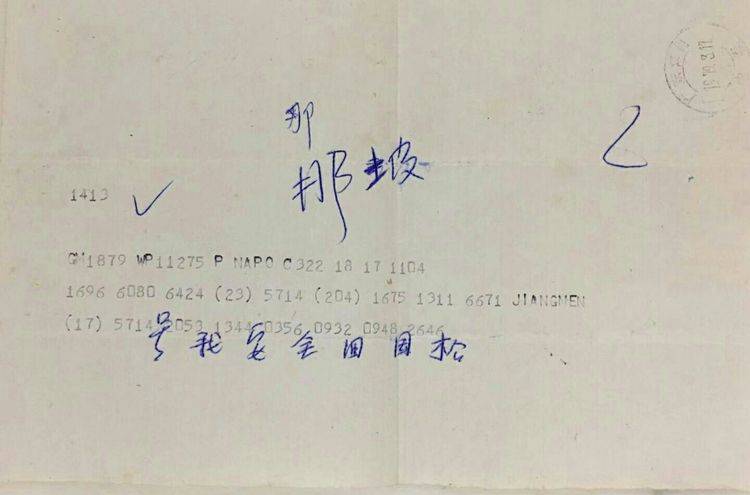 那
那坡
1413
GM1879 WP11275 P NAPO C322 18 17 1104
1696 6080 6424 (23) 5714 (204) 1675 1311 6671 JIANGMEN
(17) 5714 2053 1344 0356 0932 0948 2646
号我安全回国松